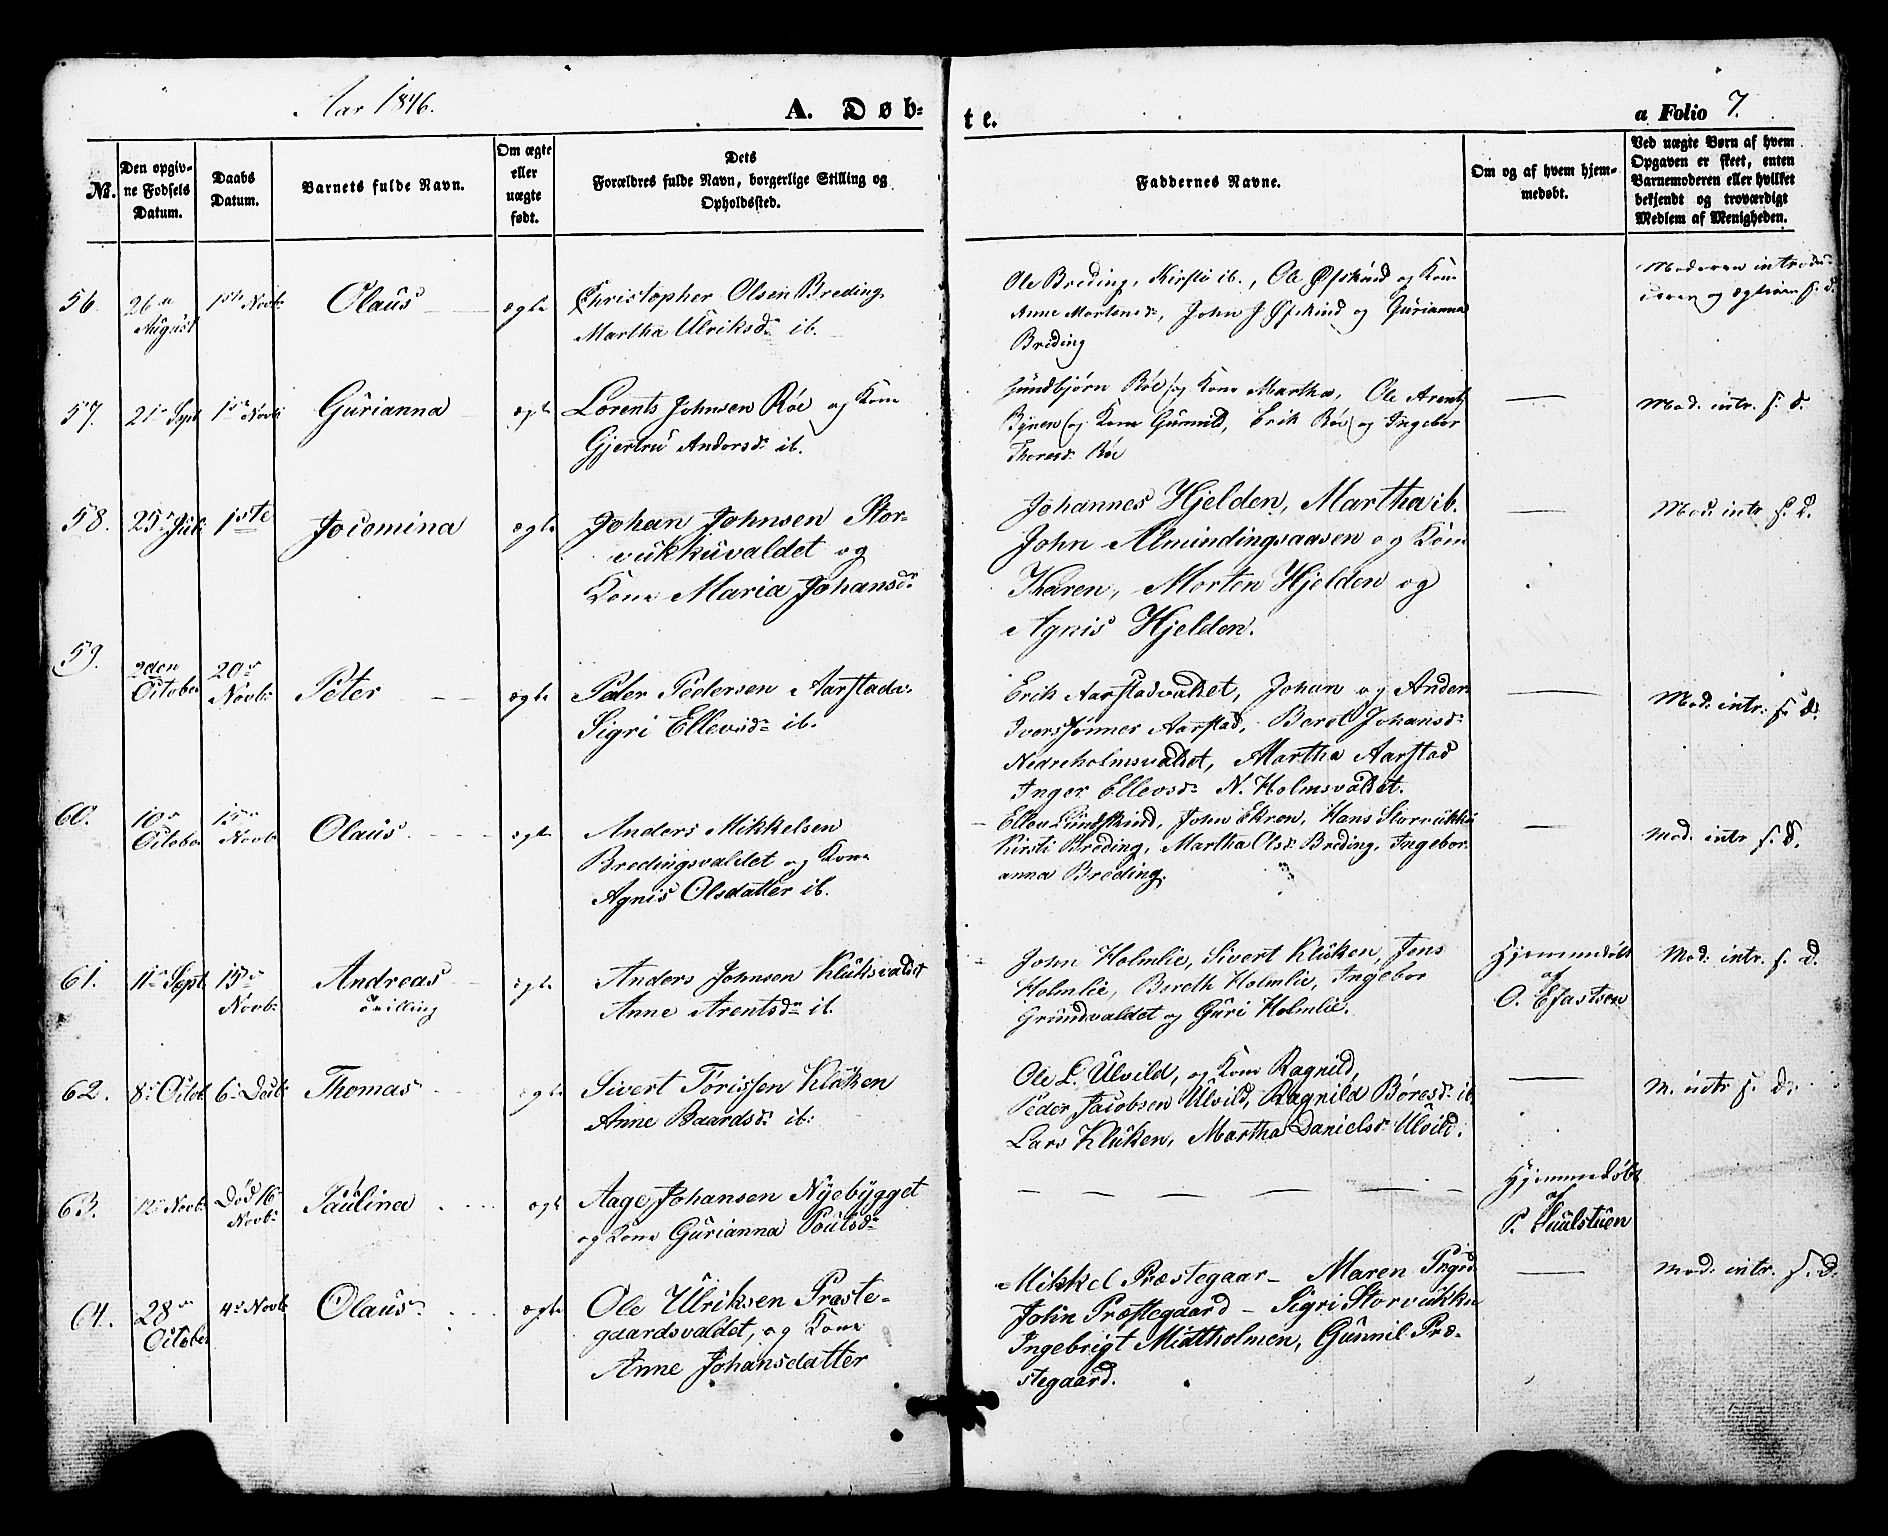 Aar 1846.
A. Døb-
te.
a Folio 7.
№.
Den opgiv-
ne Fødsels
Datum.
Daabs
Datum.
Barnets fulde Navn.
Om ægte
eller
uægte
født.
Dets
Forældres fulde Navn, borgerlige Stilling og
Opholdssted.
Faddernes Navne.
Om og af hvem hjem-
medøbt.
Ved uægte Børn af hvem
Opgaven er skeet, enten
Barnemoderen eller hvilket
bekjendt og troværdigt
Medlem af Menigheden.
56.
26de
August
1ste Novbr
Olaus
ægte
Christopher Olsen Breding
Martha Ulriksdr ib.
Ole Breding, Kirsti ib., Ole Østnes og Kone
Anne Mortensdr, John J og Gurianna
Breding
Moderen introdu-
og s. d.
57.
21de Sept
1ste Novbr
Gurianna
ægte
Lorents Johnsen Röe og Kone
Gjertru Andersdr ib.
Gundbjørn Röe og Kone Martha, Ole Arents
Bynen og Kone Gunnild, Erik Röe og Ingebor
Thoresdr Röe
—
Mod. intr. s. d.
58.
25de Juli
1ste
Jocomina
ægte
Johan Johnsen Stor-
vukkuvaldet og
Kone Maria Johansdr
Johannes Hjelden, Martha ib.
John Almindingsaasen og Kone
Karen, Morten Hjelden og
Agnis Hjelden.
—
Mod. intr. s. d.
59.
2den
October
20de
Novbr
Peter
ægte
Peder Pedersen Aarstadv.
Sigri Ellevsdr ib.
Erik Aarstadvaldet, Johan og Anders
Iverssønner Aarstad, Beret Johansdr
Nedreholmsvaldet, Martha Aarstad
Inger Ellevsdr N. Holmsvaldet.
—
Mod. intr. s. d.
60.
10de
October
15de
Novbr
Olaus
ægte
Anders Mikkelsen
Bredingsvaldet og Kone
Agnis Olsdatter ib.
Ellev Lundskind, John Ekren, Hans Storvukku
Kirsti Breding, Martha Olsdr Breding, Ingebor-
anna Breding.
—
Mod. intr s. d.
61.
11te Sept.
15de
Novbr
Andreas
tvilling
ægte
Anders Johnsen Kluksvaldet
Anne Arentsdr ib.
John Holmlie, Sivert Kluken, Jens
Holmlie, Bereth Holmlie, Ingebor
Grundvaldet og Guri Holmlie.
Hjemmedøbt
af
O. Efastsen
Mod. intr. s. d.
62.
8de Octob.
6te Decbr
Thomas
ægte
Sivert Torissen Kluken
Anne Baardsdr ib.
Ole L. Ulvild, og Kone Ragnild,
Peder Jacobsen Ulvild, Ragnild Böresdr ib.
Lars Kluken, Martha Danielsdr Ulvild.
—
M. intr s. d.
63.
12te Novbr
Död 16de
Novbr
Paulina
ægte
Aage Johansen Nyebygget
og Kone Gurianna Poulsdr
— — — — — —
Hjemmedøbt
af
P. Suulstuen
64.
28de
October
4de Novbr
Olaus
ægte
Ole Ulriksen Præste-
gaardsvaldet, og Kone
Anne Johansdatter
Mikkel Præstegaar — Maren
John Præstegaard — Sigri Storvukku
Ingebrigt Midtholmen, Gunnil Præ-
stegaard.
—
Mod. intr. s. d.